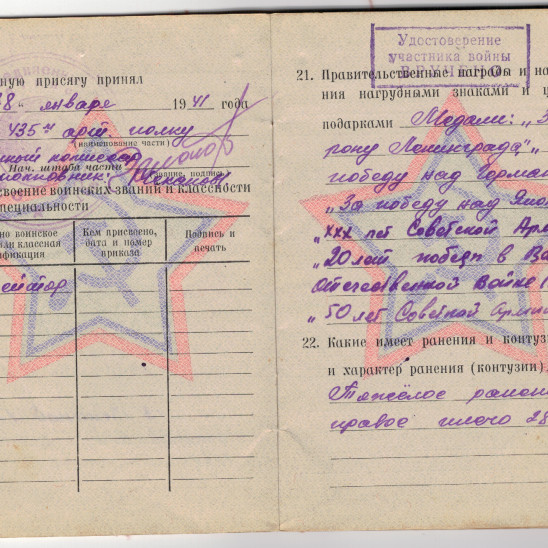 ную присягу принял
8 " январе 1941 года
435 арт полку
(наименование части)
ный комиссар
Нач. штаба части
подпись)
своение воинских званий и классности
специальности
но воинское
или классная
ификация
Кем присвоено,
дата и номер
приказа
Подпись и
печать
ейтор
Удостоверение
участника войны
ВРУЧЕНО
21. Правительственные награды и на
ния нагрудными знаками и ц
подарками Медали: „З
рону Ленинграда" „
победу над Герман
„За победу над Япо
„ХХХ лет Советской Арм
„20 лет победы в Ве
Отечественной Войне (
„50 лет Советской Армии
22. Какие имеет ранения и контузи
и характер ранения (контузии)
Тяжёлое ранен
правое плечо 28